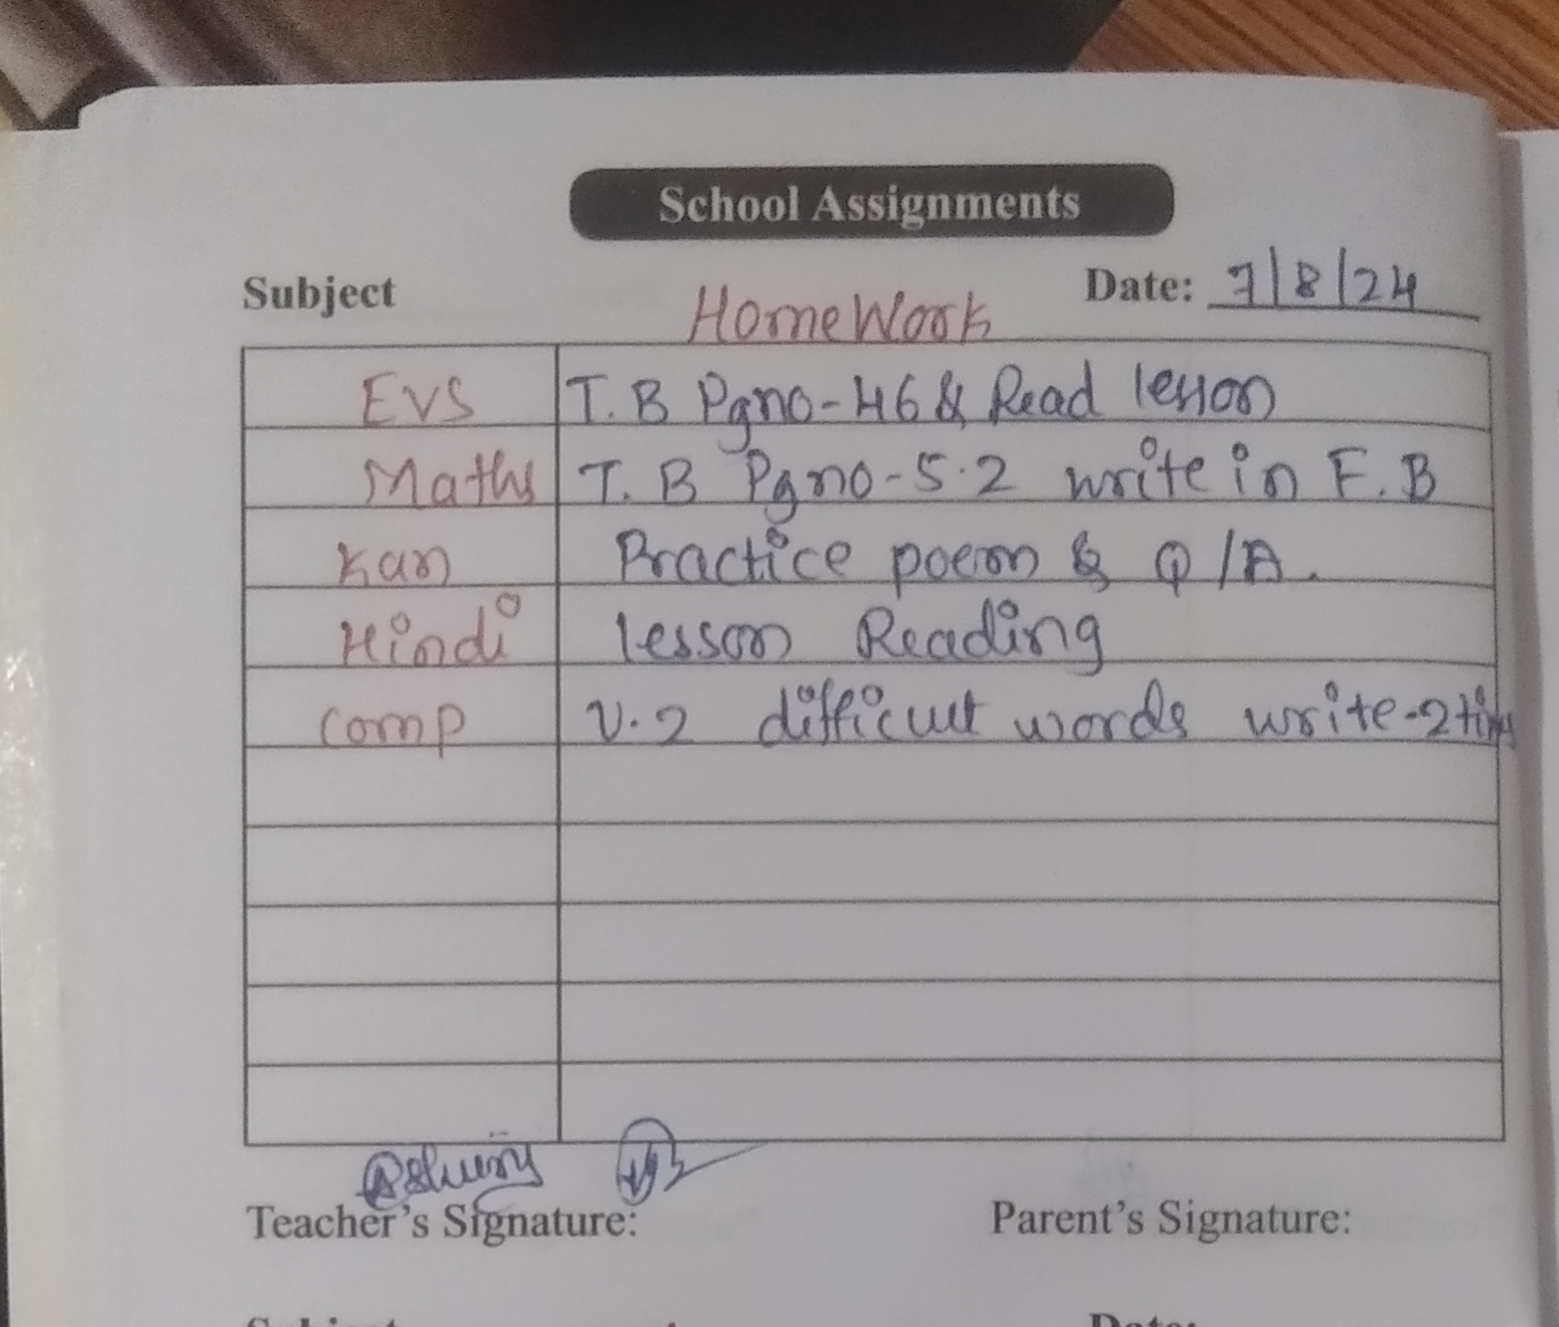 School Assignments
Subject
Date: 7/8/24
HomeWork
EVS T.B Pgno-46 & Read lesson
Maths T.B Pgno-5.2 write in F.B
Kan Practice poem & Q/A.
Hindi lesson Reading
Comp V.2 difficult words write-2 times
Teacher's Signature:
Parent's Signature: